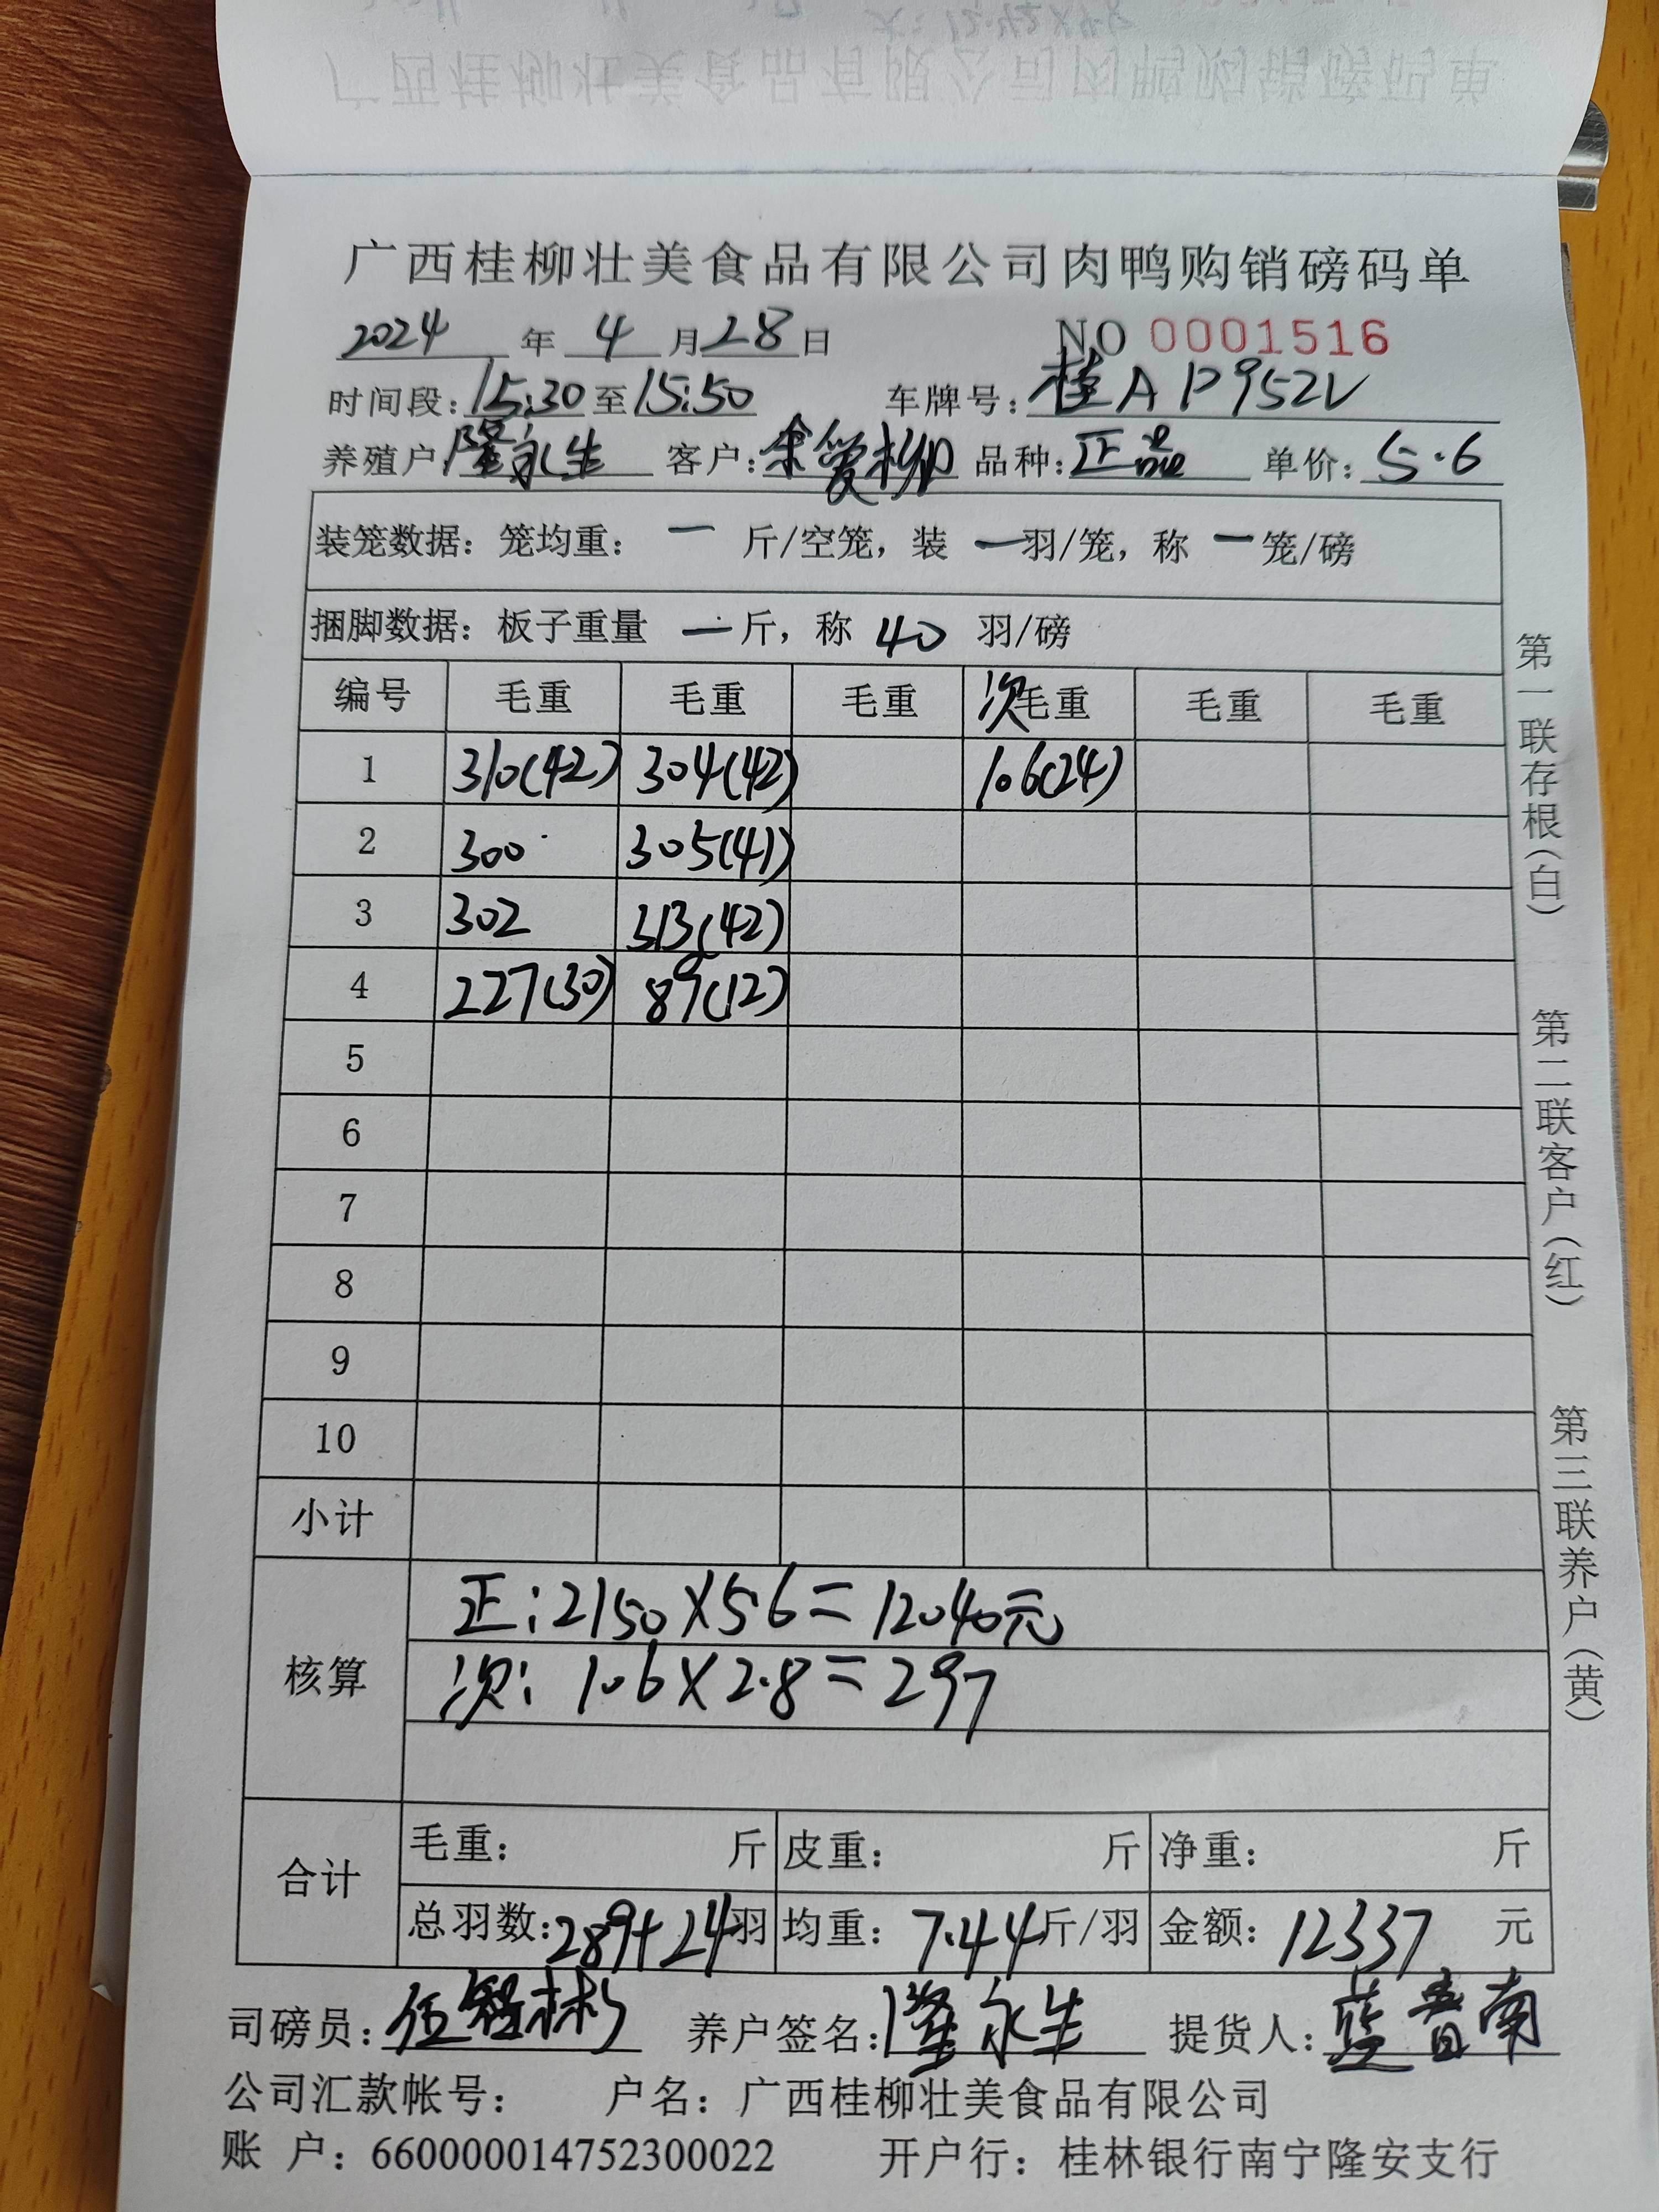 广西桂柳壮美食品有限公司肉鸭购销磅码单
2024 年 4 月 28 日 NO 0001516
时间段: 15:30 至 15:50 车牌号: 桂AP952V
养殖户 隆永生 客户: 余爱柳 品种: 正品 单价: 5.6
装笼数据: 笼均重: 一 斤/空笼, 装 一 羽/笼, 称 一 笼/磅
捆脚数据: 板子重量 一 斤, 称 40 羽/磅
编号 毛重 毛重 毛重 次毛重 毛重 毛重
1 310(42) 304(42) 106(24)
2 300 305(41)
3 302 313(42)
4 227(30) 89(12)
5
6
7
8
9
10
小计
核算
正: 2150×5.6=12040元
次: 106×2.8=297
合计
毛重: 斤 皮重: 斤 净重: 斤
总羽数: 289+24 羽 均重: 7.44 斤/羽 金额: 12337 元
司磅员: 伍 彬 养户签名: 隆永生 提货人: 蓝 南
公司汇款帐号: 户名: 广西桂柳壮美食品有限公司
账 户: 660000014752300022 开户行: 桂林银行南宁隆安支行
第一联存根(白)
第二联客户(红)
第三联养户(黄)